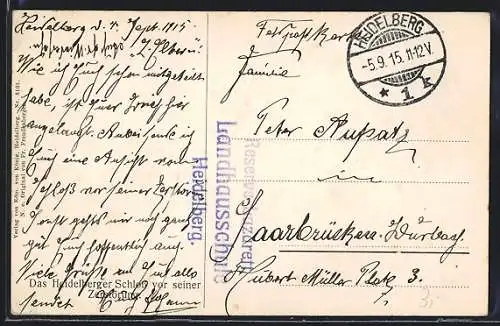 Heidelberg d. 4. Sept. 1915
L. Eltern!
Wie ich Euch schon mitgeteilt
habe, ist
angelangt. Anbei sende ich
Euch eine Ansicht vom
Schloß vor seiner Zerstörung.
Sonst geht's mir noch ganz
gut Euch hoffentlich auch.
Viele Grüße an Euch alle
sendet
Das Heidelberger Schloß vor seiner
Zerstörung
Verlag von Edm. von König, Heidelberg.
Reservelazarett
Landhausschule
Heidelberg.
Feldpostkarte
HEIDELBERG
-5.9.15. 11-12V.
* 1 k
Familie
Peter
in
Saarbrücken-Burbach
Hubert Müller Platz 3.